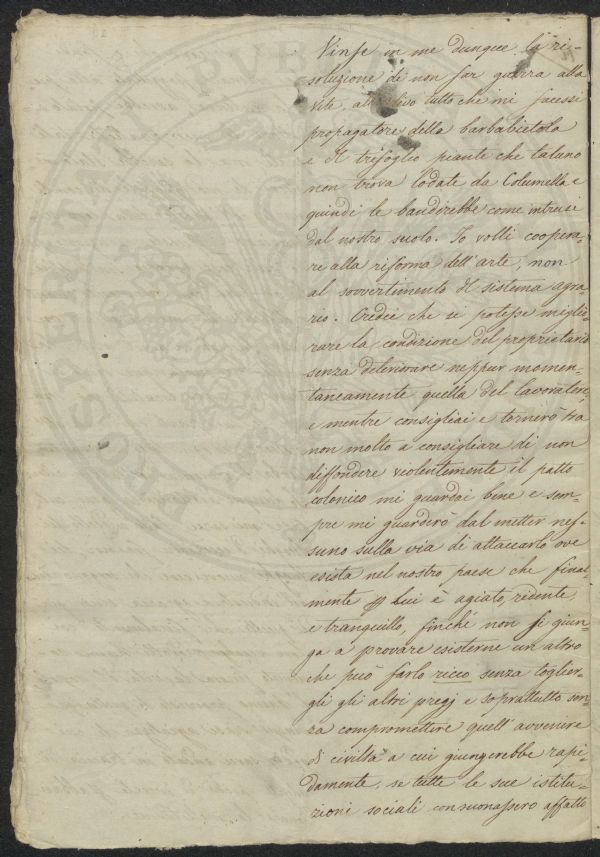 Vinse in me dunque la ri-
soluzione di non far guerra alla
vite, tutto che mi facessi
propagatore della barbabietola
e Il trifoglio piante che taluno
non trova lodate da Columella e
quindi le bandirebbe come intrusi
dal nostro suolo. Io volli coopera-
re alla riforma dell'arte, non
al sovvertimento Il sistema agra-
rio. Credei che si potesse miglio-
rare la condizione del proprietario
senza deteriorare neppur momen-
taneamente quella del lavoratore,
e mentre consigliai e tornerò tra
non molto a consigliare di non
diffondere violentemente il patto
colonico mi guardai bene e sem-
pre mi guarderò dal metter nes-
suno sulla via di attaccarlo ove
esista nel nostro paese che final-
mente Lui è agiato, ridente,
e tranquillo, finché non si giun-
ga a provare esisterne un altro
che può farlo ricco senza toglier-
gli gli altri pregj e soprattutto sen-
za compromettere quell'avvenire
di civiltà a cui giungerebbe rapi-
damente, se tutte le sue istitu-
zioni sociali consuonassero affatto